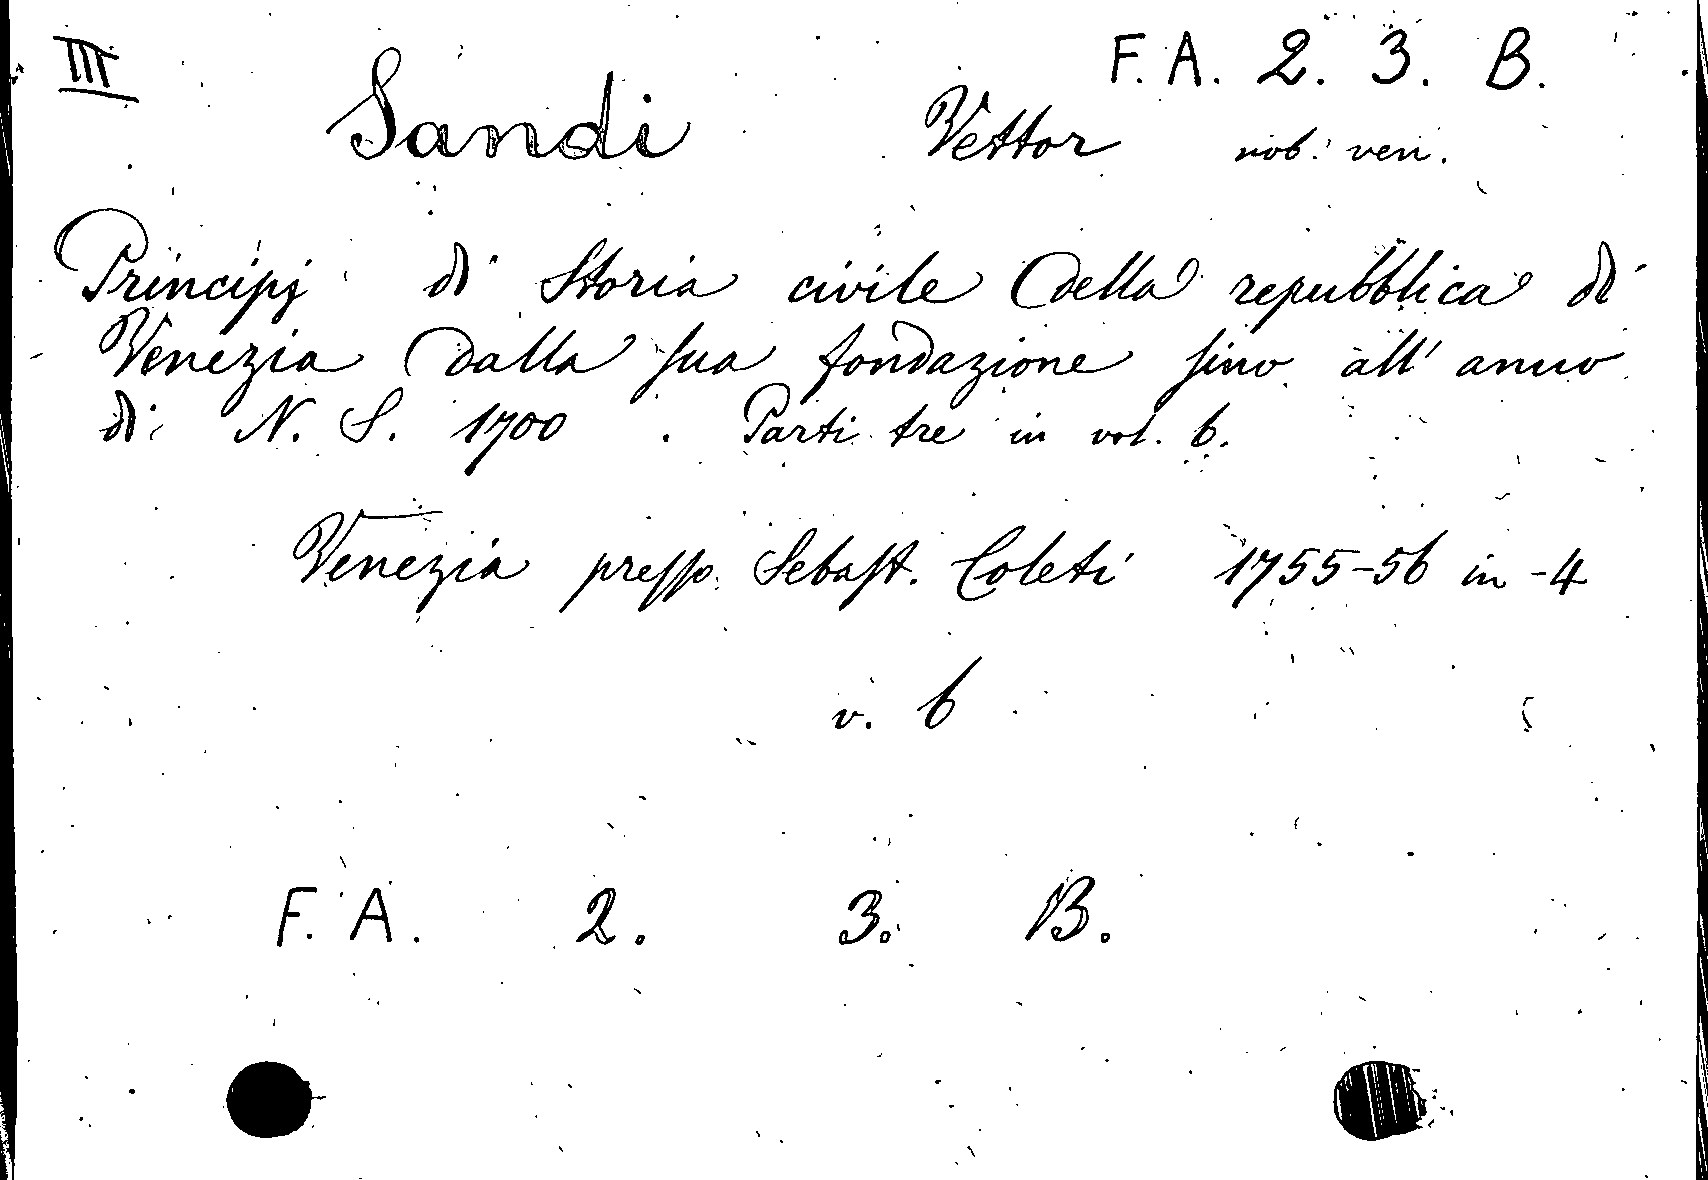 III
F. A. 2. 3. B.
Sandi Vettor nob. ven.
Principj di Storia civile della repubblica di
Venezia dalla sua fondazione sino all' anno
di N. S. 1700. Parti tre in vol. 6.
Venezia presso Sebast. Coleti 1755-56 in-4
v. 6
F. A. 2. 3. B.